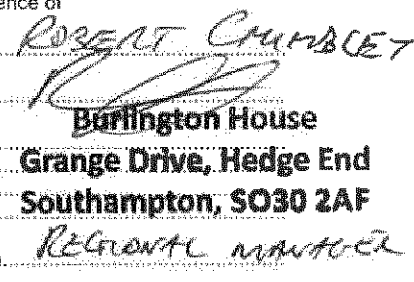 ence of
ROBERT CHUMBLEY
Burlington House
Grange Drive, Hedge End
Southampton, SO30 2AF
REGIONAL MANAGER